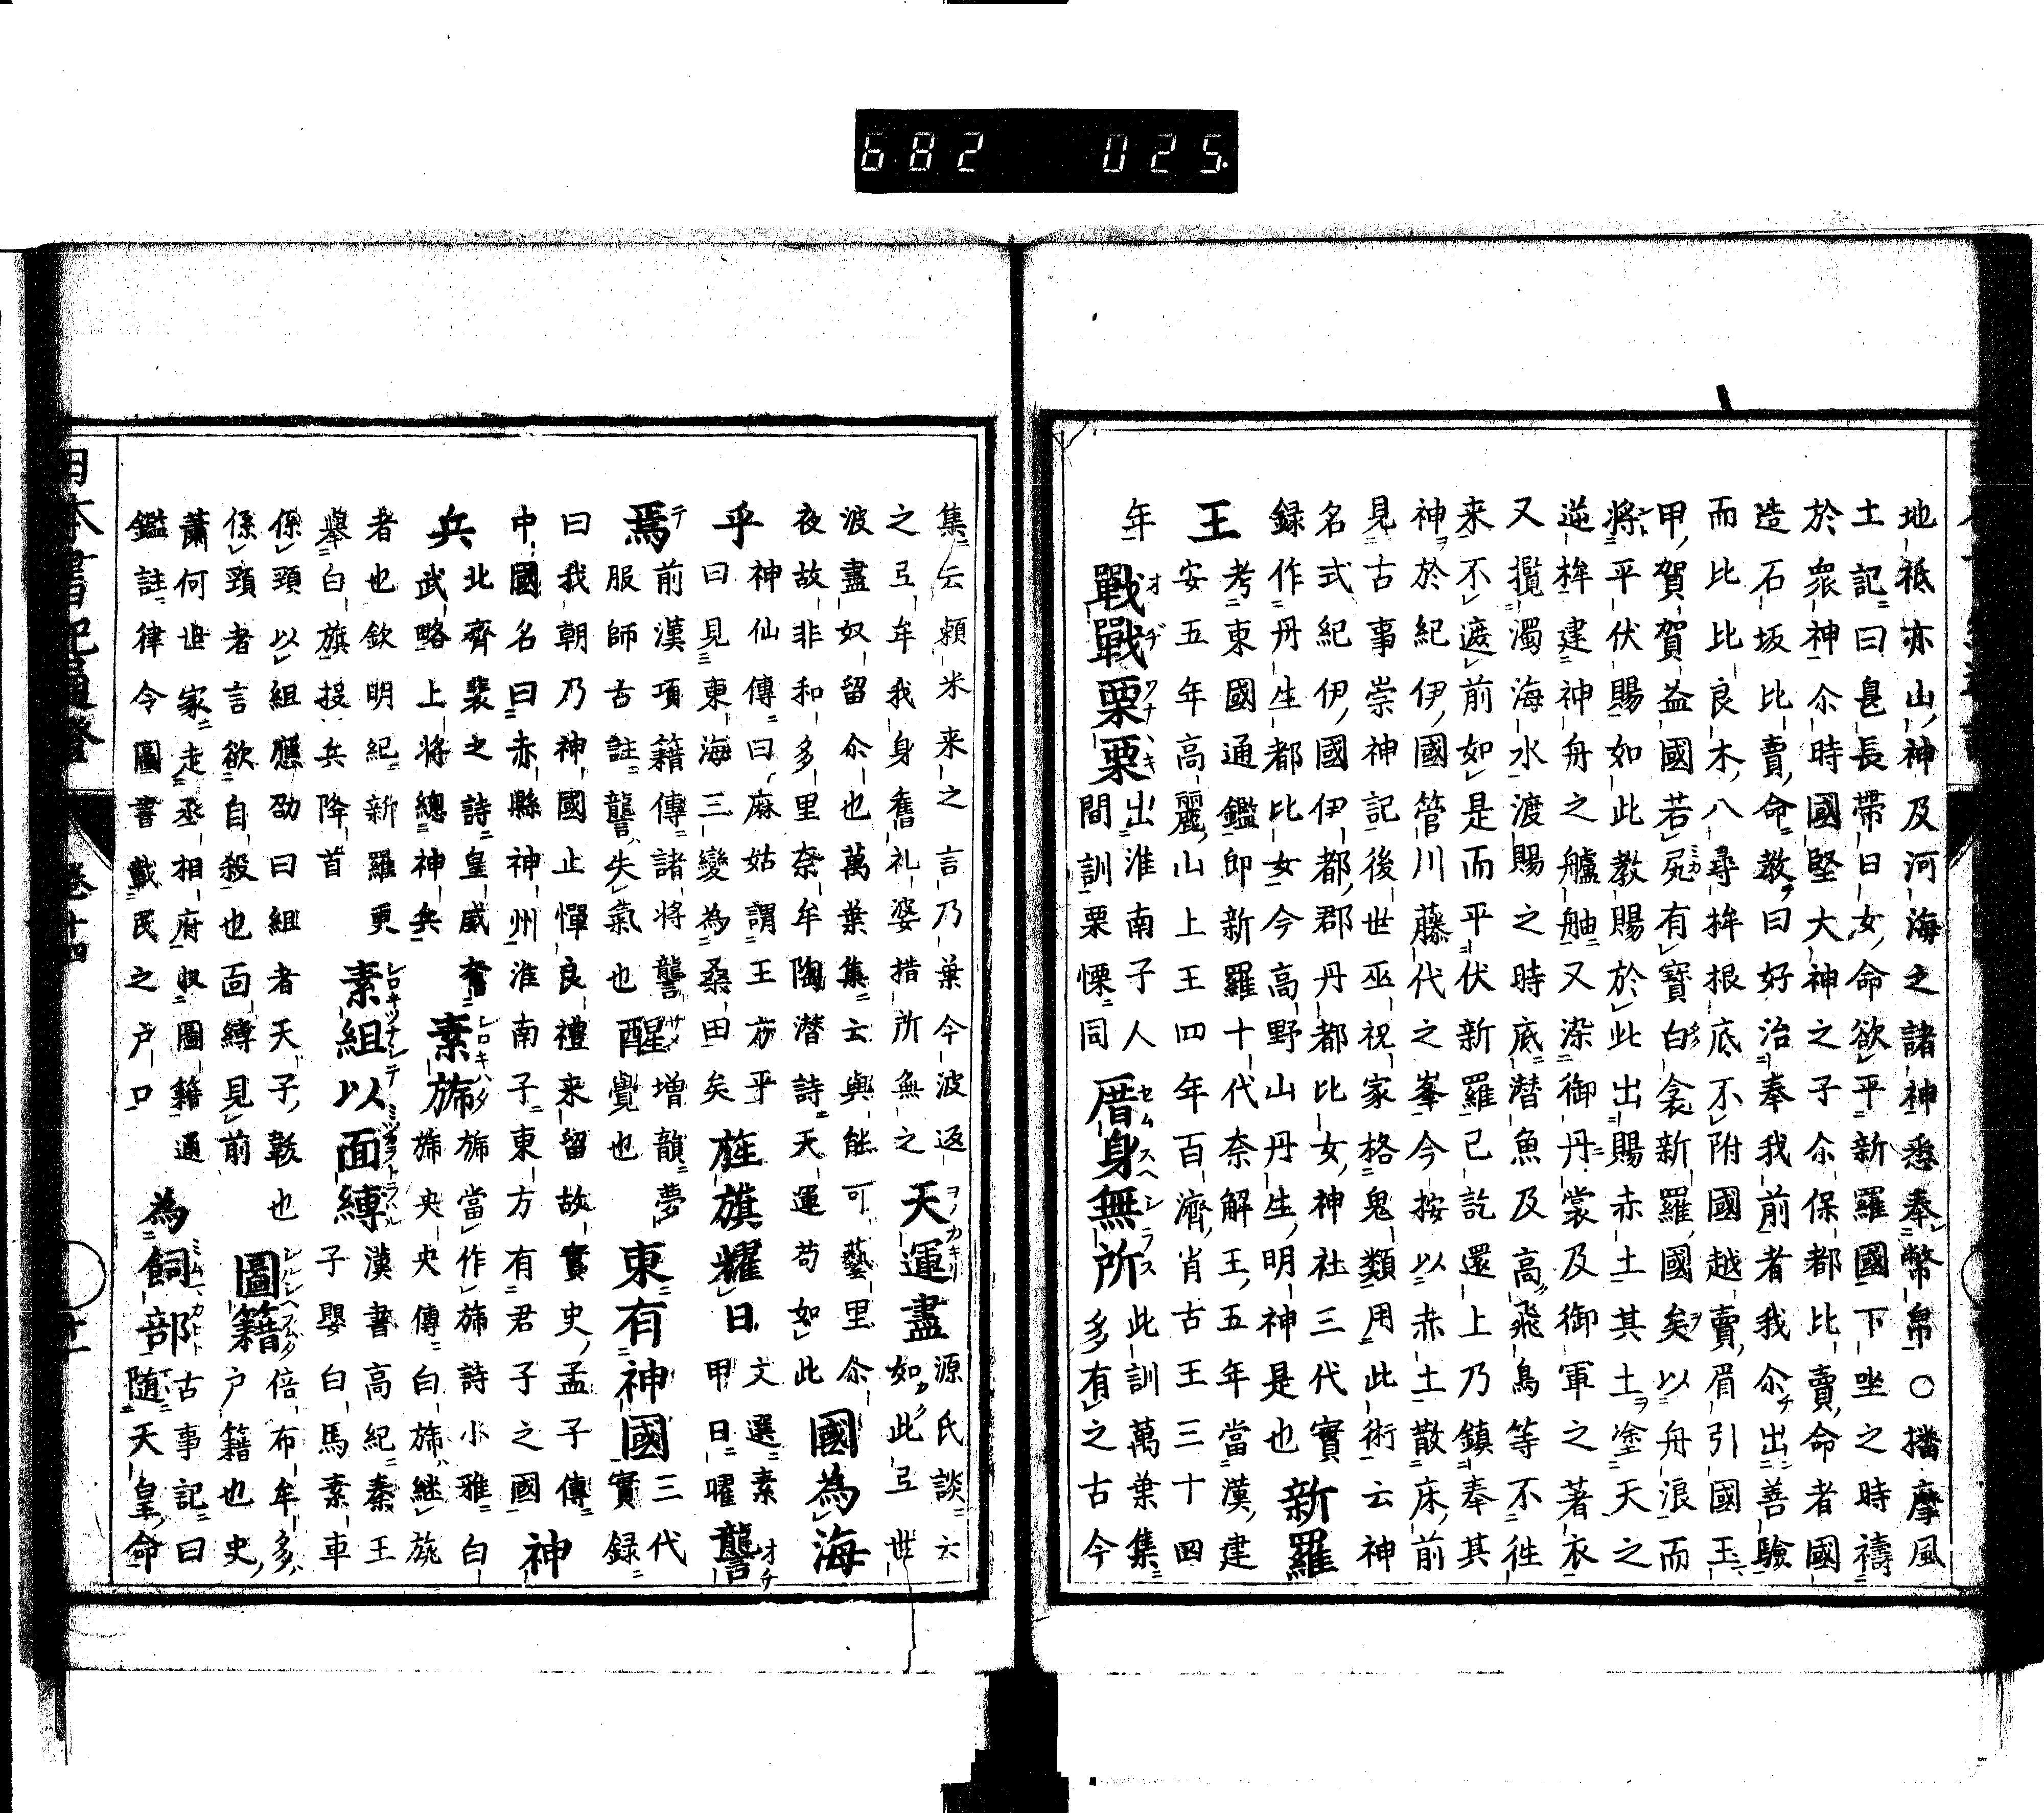 682 025
地祇亦山神及河海之諸神悉奉幣帛○播摩風
土記曰息長帶日女命欲平新羅國下坐之時禱
於衆神尒時國堅大神之子尒保都比賣命者國
造石坂比賣命教曰好治奉我前者我尒出善驗
而比比良木八尋桙根底不附國越賣眉引國玉
甲賀賀益國若尻有寶白衾新羅國矣以丹浪而
將平伏賜如此教賜於此出賜赤土其土塗天之
逆桙建神舟之艫舳又染御丹裳及御軍之著衣
又攪濁海水渡賜之時底潜魚及高飛鳥等不徃
来不遮前如是而平伏新羅已訖還上乃鎮奉其
神於紀伊國管川藤代之峯今按以赤土散床前
見古事崇神記後世巫祝家格鬼類用此術云神
名式紀伊國伊都郡丹都比女神社三代實
録作丹生都比女今高野山丹生明神是也 新羅
王 考東國通鑑即新羅十代奈解王五年當漢建
安五年高麗山上王四年百濟肖古王三十四
年 戰戰栗栗 出淮南子人間訓栗慄同 厝身無所 此訓萬葉集多有之古今
集云穎米来之言乃葉今波返 天運盡 源氏談云如此弖世
之弖牟我身舊礼婆措所無之
波盡奴留尒也萬葉集云與能可藝里尒 國為海
夜故非和多里奈牟陶潜詩天運苟如此
乎 神仙傳曰麻姑謂王方平曰見東海三變為桑田矣 旌旗耀日 文選素甲日曜 讋
焉 前漢項籍傳諸将讋服師古註讋失氣也 醒 増韻夢覺也 東有神國 三代實録
曰我朝乃神國止憚良禮来留故實史孟子傳
中國名曰赤縣神州淮南子東方有君子之國 神
兵 北齊裴之詩皇威奮武略上将總神兵 素旆 旆當作旆詩小雅白旆央央傳白旆継旐
者也欽明紀新羅更擧白旗投兵降首 素組以面縛 漢書高紀秦王子嬰白馬素車
係頸以組應劭曰組者天子韍也
係頸者言欲自殺也面縛見前 圖籍 倍布牟多户籍也史
蕭何世家走丞相府収圖籍通
鑑註律令圖書載民之户口 為飼部 古事記曰随天皇命
日本書紀通證 卷十四